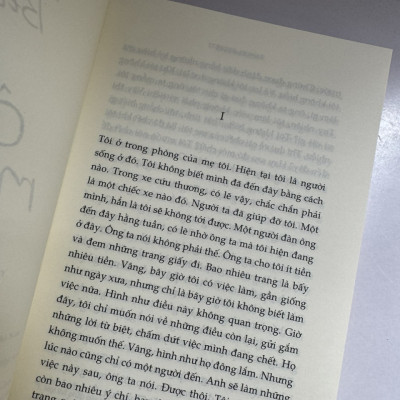 I
Tôi ở trong phòng của mẹ tôi. Hiện tại tôi là người
sống ở đó. Tôi không biết mình đã đến đây bằng cách
nào. Trong xe cứu thương, có lẽ vậy, chắc chắn phải
là một chiếc xe nào đó. Người ta đã giúp đỡ tôi. Một
mình, hẳn là tôi sẽ không tới được. Một người đàn ông
đến đây hằng tuần, có lẽ nhờ ông ta mà tôi hiện đang
ở đây. Ông ta nói không phải thế. Ông ta cho tôi ít tiền
và đem những trang giấy đi. Bao nhiêu trang là bấy
nhiêu tiền. Vâng, bây giờ tôi có việc làm, gần giống
như ngày xưa, nhưng chỉ là bây giờ tôi không biết làm
việc nữa. Hình như điều này không quan trọng. Giờ
đây, tôi chỉ muốn nói về những điều còn lại, gửi gắm
những lời từ biệt, chấm dứt việc mình đang chết. Họ
không muốn thế. Vâng, hình như họ đông lắm. Nhưng
lúc nào cũng chỉ có một người đến. Anh sẽ làm những
việc này sau, ông ta nói. Được thôi.
còn bao nhiêu ý chí